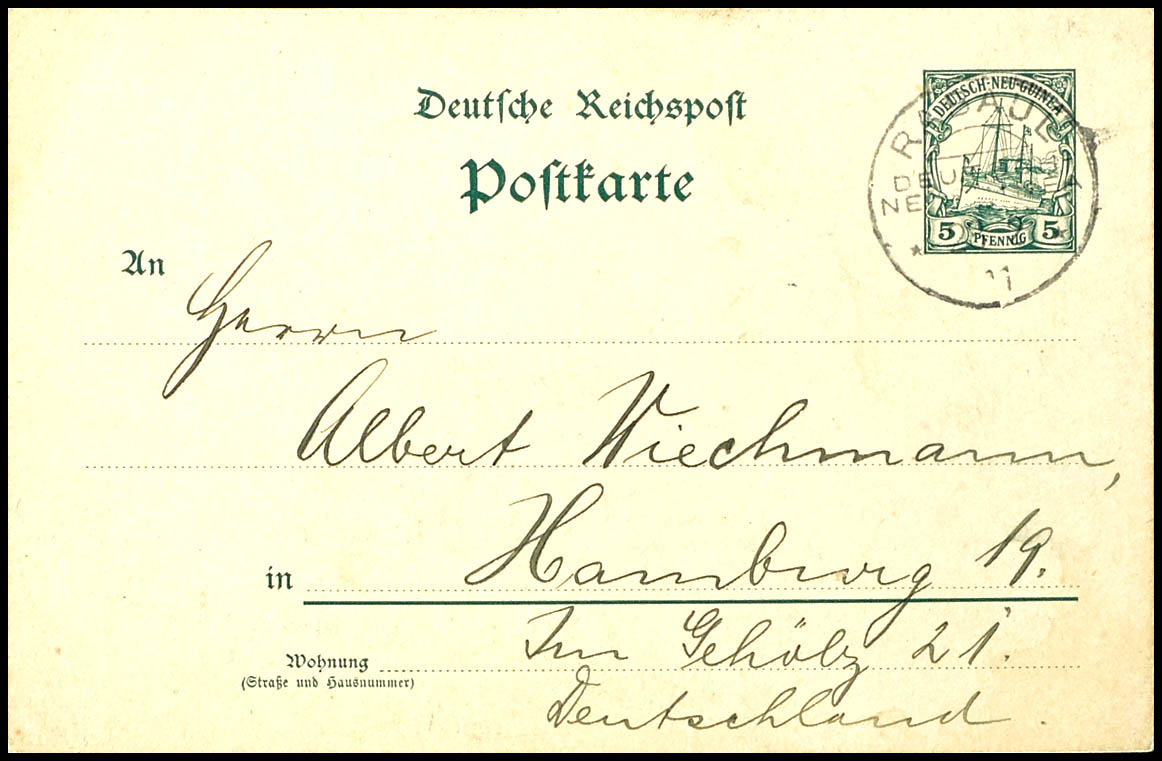 Deutsche Reichspost
Postkarte
DEUTSCH-NEU-GUINEA
5 PFENNIG 5
RABAUL
11
An
Herrn
Albert Wiechmann,
in Hamburg 19.
Wohnung Im Gehölz 21.
(Straße und Hausnummer)
Deutschland.